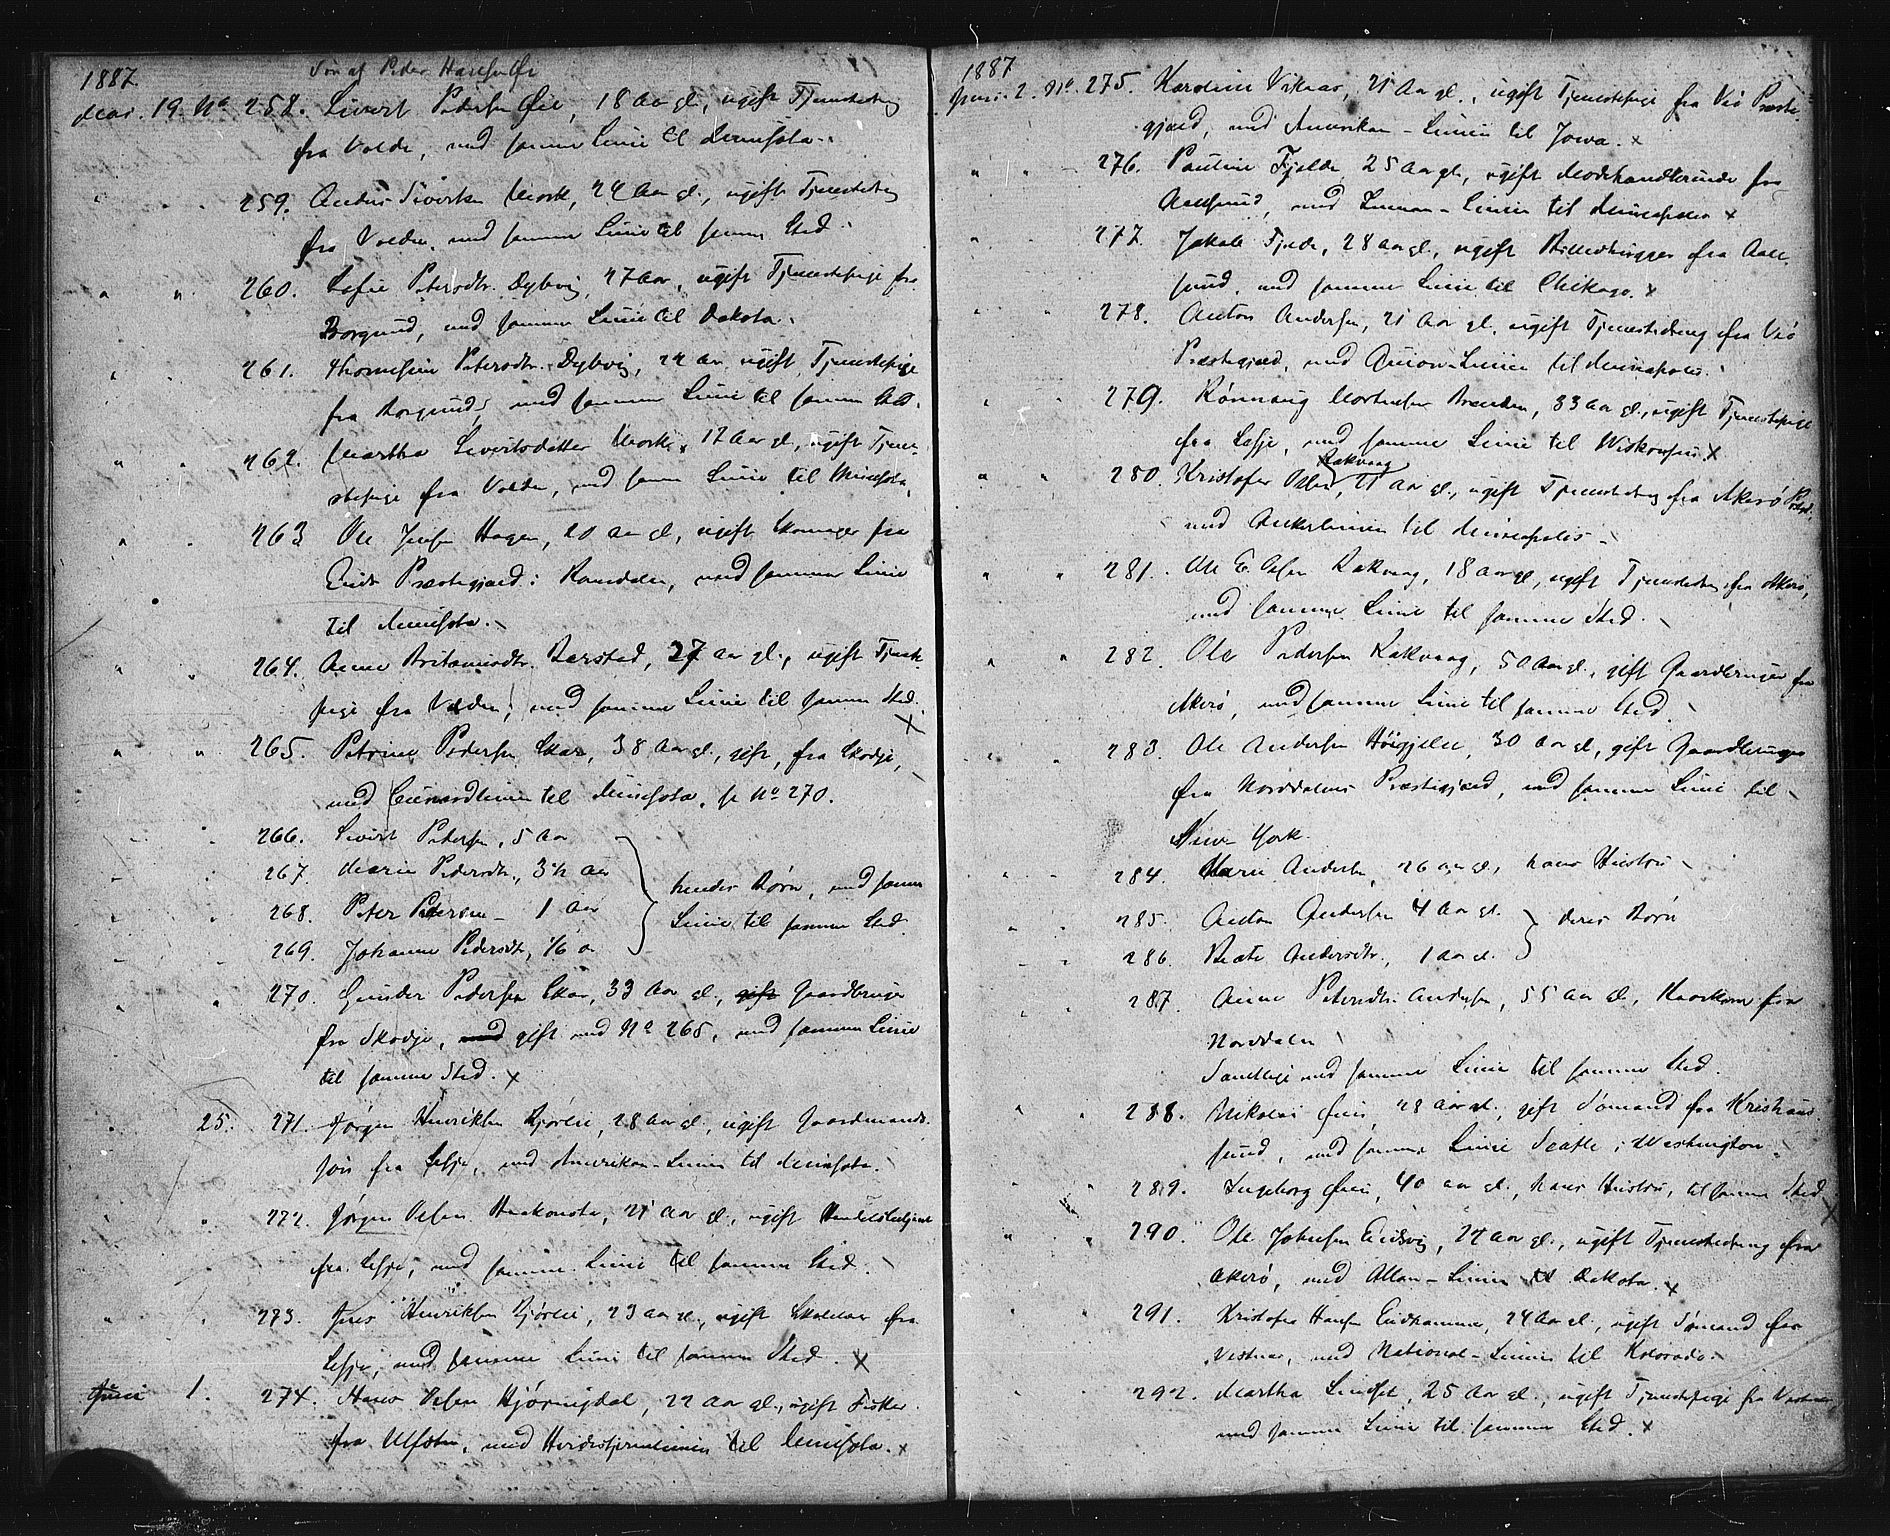 1887. Søn af Peder
Mai. 19. No 258. Sivert Pedersen Øie, 18 Aar gl., ugift Tjenestedreng
fra Volden, med samme Linie til Minesota.
" " 259. Anders Sivertsen Mork, 24 Aar gl., ugift Tjenestedreng
fra Volden, med samme Linie til samme Sted.
" " 260. Sofie Petersdtr. Dybvig, 27 Aar, ugift Tjenestepige fra
Borgund, med samme Linie til Dakota.
" " 261. Thomesine Petersdtr. Dybvig, 22 Aar, ugift, Tjenestepige
fra Borgund, med samme Linie til samme Sted.
" " 262. Martha Sivertsdatter Mork, 17 Aar gl., ugift Tjene-
stepige fra Volden, med samme Linie til Minesota.
" " 263 Ole Jensen Hagen, 20 Aar gl., ugift fra
Eids Præstegjæld i Romsdalen, med samme Linie
til Minesota.
" " 264. Anne Berstad, 27 Aar gl., ugift Tjeneste-
pige fra Volden, med samme Linie til samme Sted. x
" " 265. Petrine Pedersen Skar, 38 Aar gl., gift, fra Skodje,
med Cunardlinien til Minesota, se No 270.
266. Sivert Pedersen, 5 Aar
267. Marie Pedersdtr., 3½ Aar
268. Peter Pedersen - 1 Aar
269. Johanne Pedersdtr., 1/6 Aar
hendes Børn, med samme
Linie til samme Sted.
" 270. Gunder Pedersen Skar, 33 Aar gl., gift Gaardbruger
fra Skodje, med gift med No 265, med samme Linie
til samme Sted. x
25. 271. Jørgen Henriksen Bjørlie, 28 Aar gl., ugift Gaardmands-
søn fra Lesje, med Amerikan-Linien til Minesota.
" 272. Jørgen Olsen 21 Aar gl., ugift Handelsbetjent
fra Lesje, med samme Linie til samme Sted.
" " 273. Jens Henriksen Bjørlie, 23 Aar gl., ugift fra
Lesje, med samme Linie til samme Sted. x
Juni 1. 274. Hans Olsen Hjørungdal, 22 Aar gl., ugift Fisker
fra Ulfsten, med Hvidestjernelinien til Minesota. x
1887
Juni. 2. No 275. Karoline Viknes, 21 Aar gl., ugift Tjenestepige fra Veø Præste-
gjæld, med Amerikan-Linien til Jowa. x
" " 276. Pauline Fjelde, 25 Aar gl., ugift Modehandlerinde fra
Aalesund, med Inman-Linien til Mineapolis x
" " 277. Jakob Fjelde, 28 Aar gl., ugift Billedhugger fra Aale-
sund, med samme Linie til Chikago. x
" " 278. Anton Andersen, 21 Aar gl., ugift Tjenestedreng fra Veø
Præstegjæld, med Guion-Linien til Mineapolis.
" " 279. Rønnaug Mortensen Brenden, 33 Aar gl., ugift Tjenestepige
fra Lesje, med samme Linie til Wiskonsin. x
Rakvaag
" " 280. Kristofer Olsen, 21 Aar gl., ugift Tjenestedreng fra Akerø
med Ankerlinien til Mineapolis
" " 281. Ole E. Olsen Rakvaag, 18 Aar gl., ugift Tjenestedreng fra Akerø,
med samme Linie til samme Sted.
" " 282. Ole Pedersen Rakvaag, 50 Aar gl., gift Gaardbruger fra
Akerø, med samme Linie til samme Sted.
" " 283. Ole Andersen Høigjelle, 30 Aar gl., gift Gaardbruger
fra Norddalens Præstegjæld, med samme Linie til
New-York.
" " 284. Marie Andersen, 26 Aar gl., hans Hustru
" " 285. Anton Andersen 4 Aar gl.
" " 286. Beate Andersdtr., 1 Aar gl.
deres Børn
" 287. Anne Petersdtr. Andersen, 55 Aar gl., fra
Norddalen
Samtlige med samme Linie til samme Sted.
" " 288. Nikolai 28 Aar gl., gift Sømand fra Kristian-
sund, med samme Linie Seatle i Washington.
" " 289. Ingeborg 40 Aar gl., hans Hustru, til samme Sted x
" " 290. Ole Johnsen Eidsvig, 22 Aar gl., ugift Tjenestedreng fra
Akerø, med Allan-Linien til Dakota. x
" " 291. Kristofer Hansen Eidhammer, 24 Aar gl., ugift Sømand fra
Vestnes, med National-Linien til Kolorado.
" " 292. Martha Lindset, 25 Aar gl., ugift Tjenestepige fra Vestnes
med samme Linie til samme Sted. x